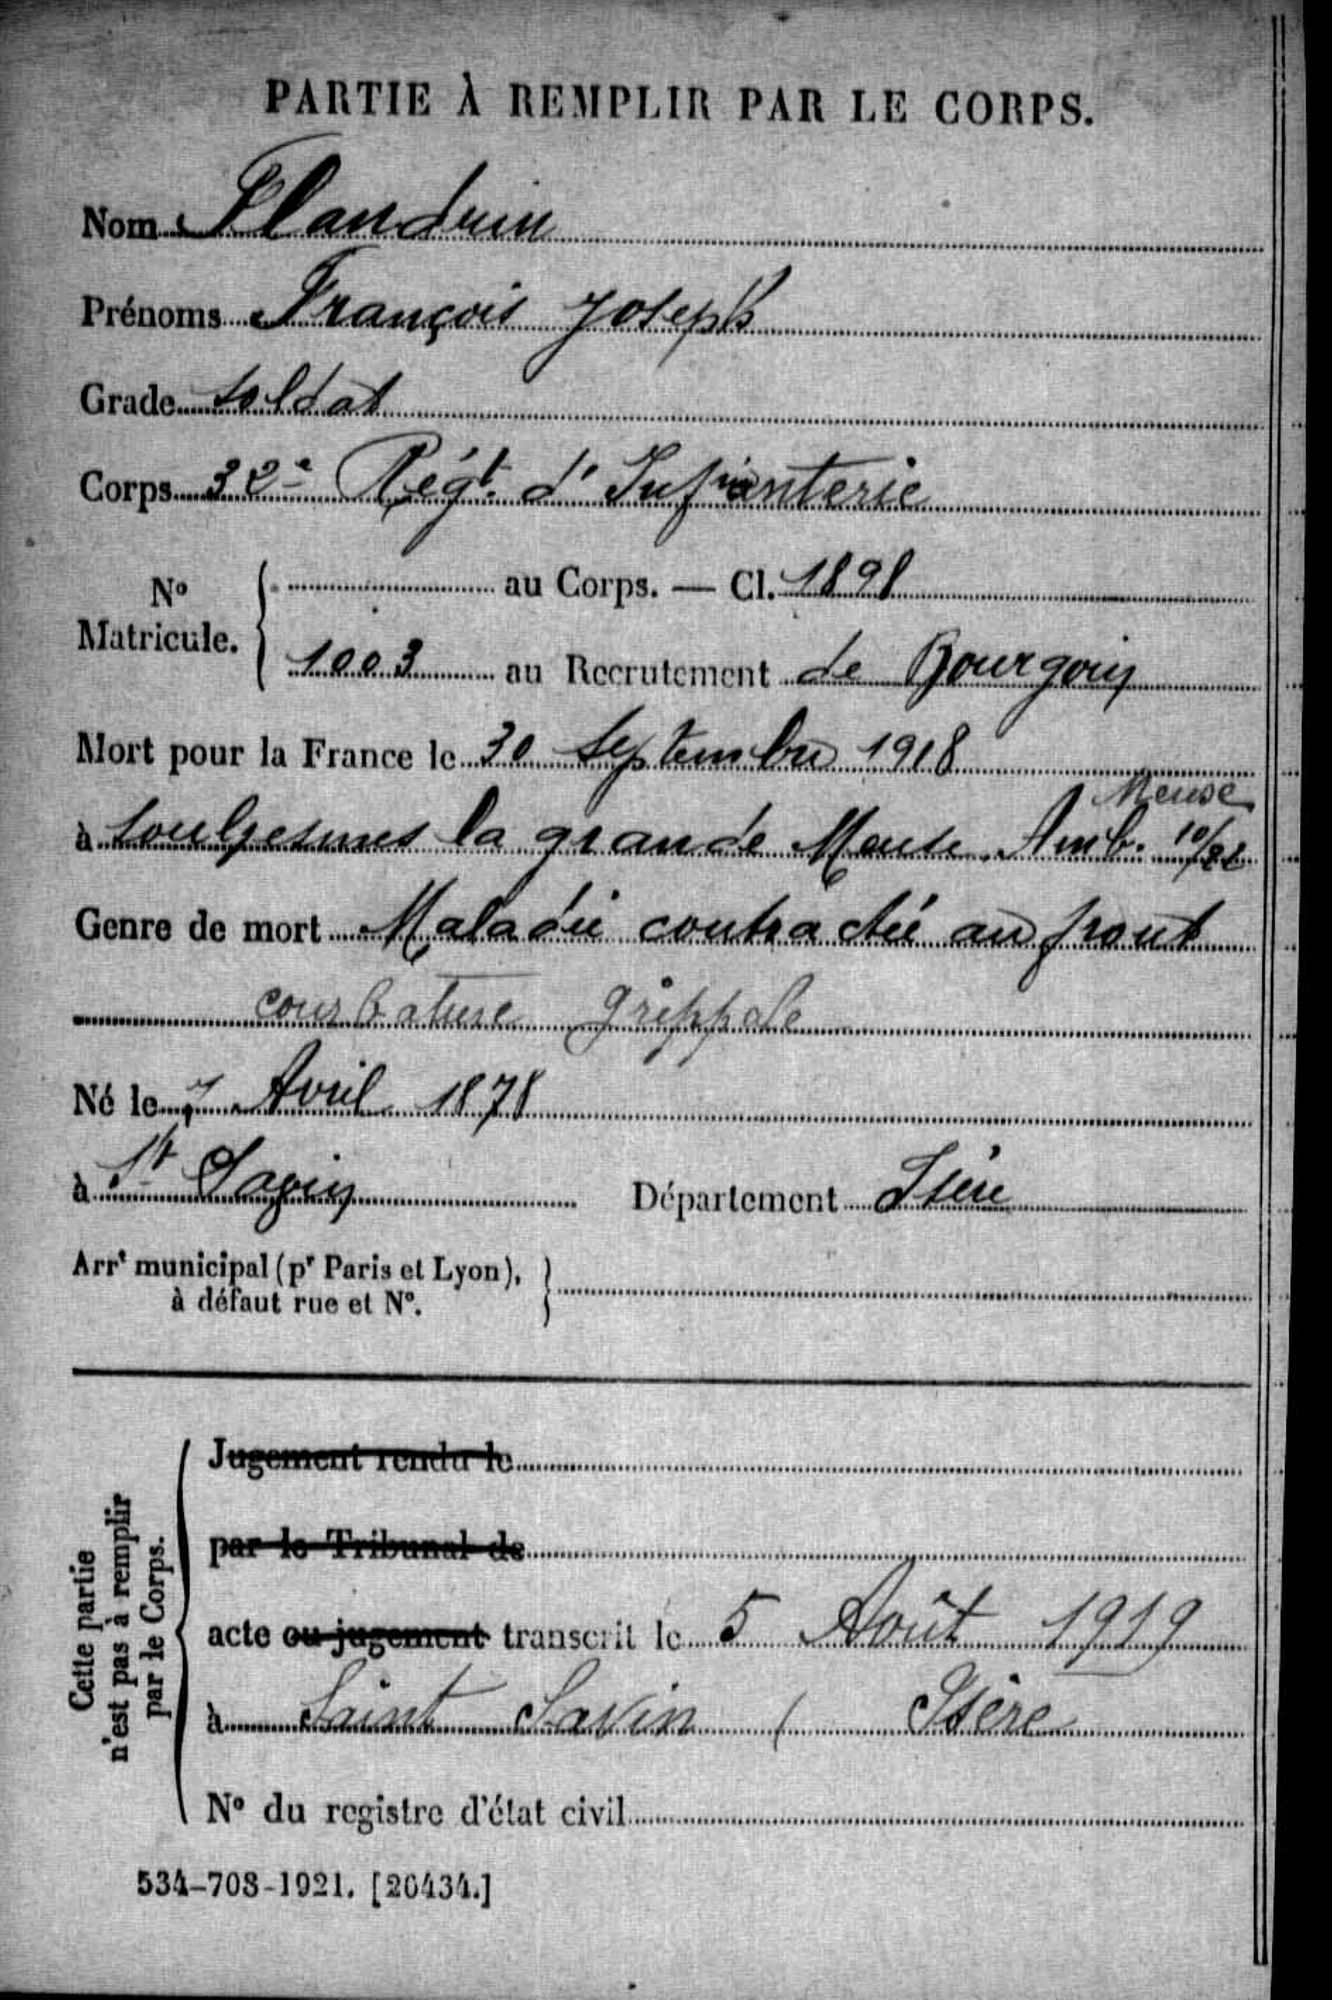 PARTIE À REMPLIR PAR LE CORPS.
Nom Flandrin
Prénoms François Joseph
Grade soldat
Corps 32e Régt. d'Infanterie
No Matricule. { au Corps. — Cl. 1898
1003 au Recrutement de Bourgoin
Mort pour la France le 30 Septembre 1918
Meuse
à la grande Meuse Amb. 10/22
Genre de mort Maladie contractée au front
courbature grippale
Né le 7 Avril 1878
à St Savin Département Isère
Arrt municipal (pr Paris et Lyon),
à défaut rue et No.
Cette partie
n'est pas à remplir
par le Corps.
Jugement rendu le
par le Tribunal de
acte ou jugement transcrit le 5 Août 1919
à Saint Savin ( Isère
No du registre d'état civil
534-708-1921. [26434.]